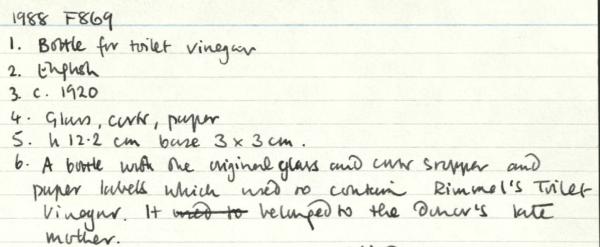 1988 F869
1. Bottle for toilet vinegar
2. English
3. c. 1920
4. Glass, cork, paper
5. h 12.2 cm base 3 x 3 cm.
6. A bottle with the original glass and cork stopper and
paper labels which used to contain Rimmel's Toilet
Vinegar. It used to belonged to the donor's late
mother.